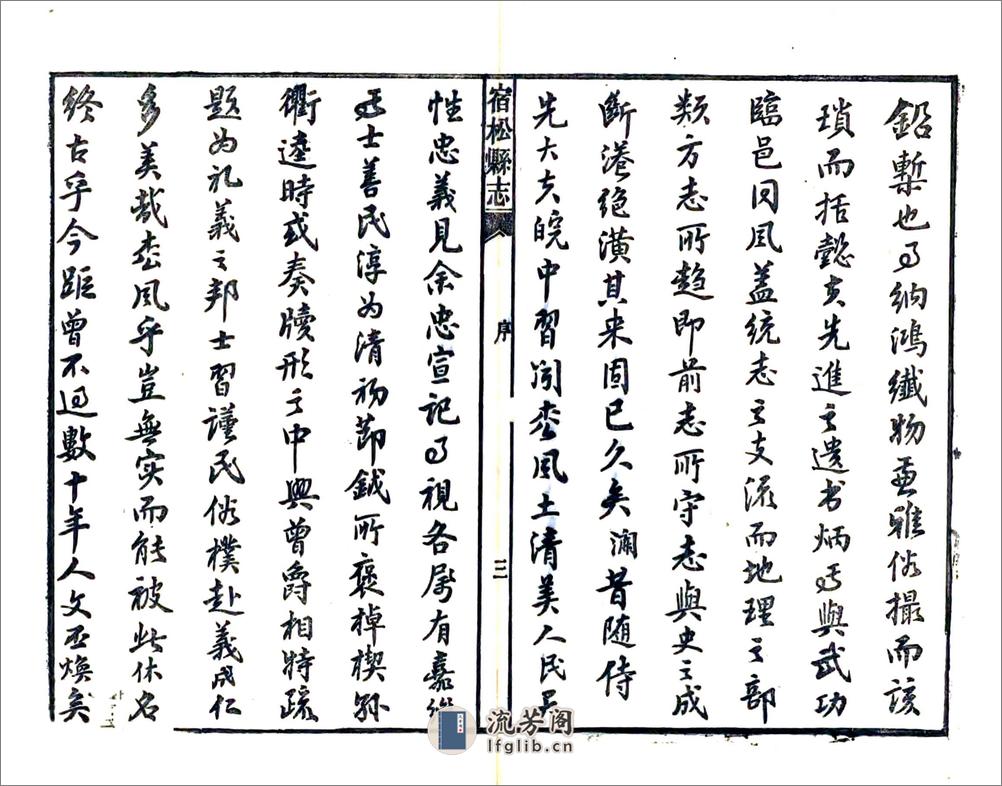 鉛槧也而納鴻纖物兼雅俗撮而該
瑣而括懿夫先進之遺书炳焉與武功
臨邑同风盖統志之支流而地理之部
類方志所趨即前志所守志與史之成
斷港絕潢其来固已久矣澜昔随侍
先大夫皖中習闻松风土清美人民
宿松縣志
序
三
性忠義見余忠宣记而視各属有嘉
焉士善民淳为清初節鉞所褒棹楔
衢逵時或奏牘形之中興曾爵相特疏
题为礼義之邦士習谨民俗樸赴義成仁
多美哉松风乎豈無实而能被此休名
终古乎今距曾不过數十年人文丕焕矣
流芳阁
lfglib.cn